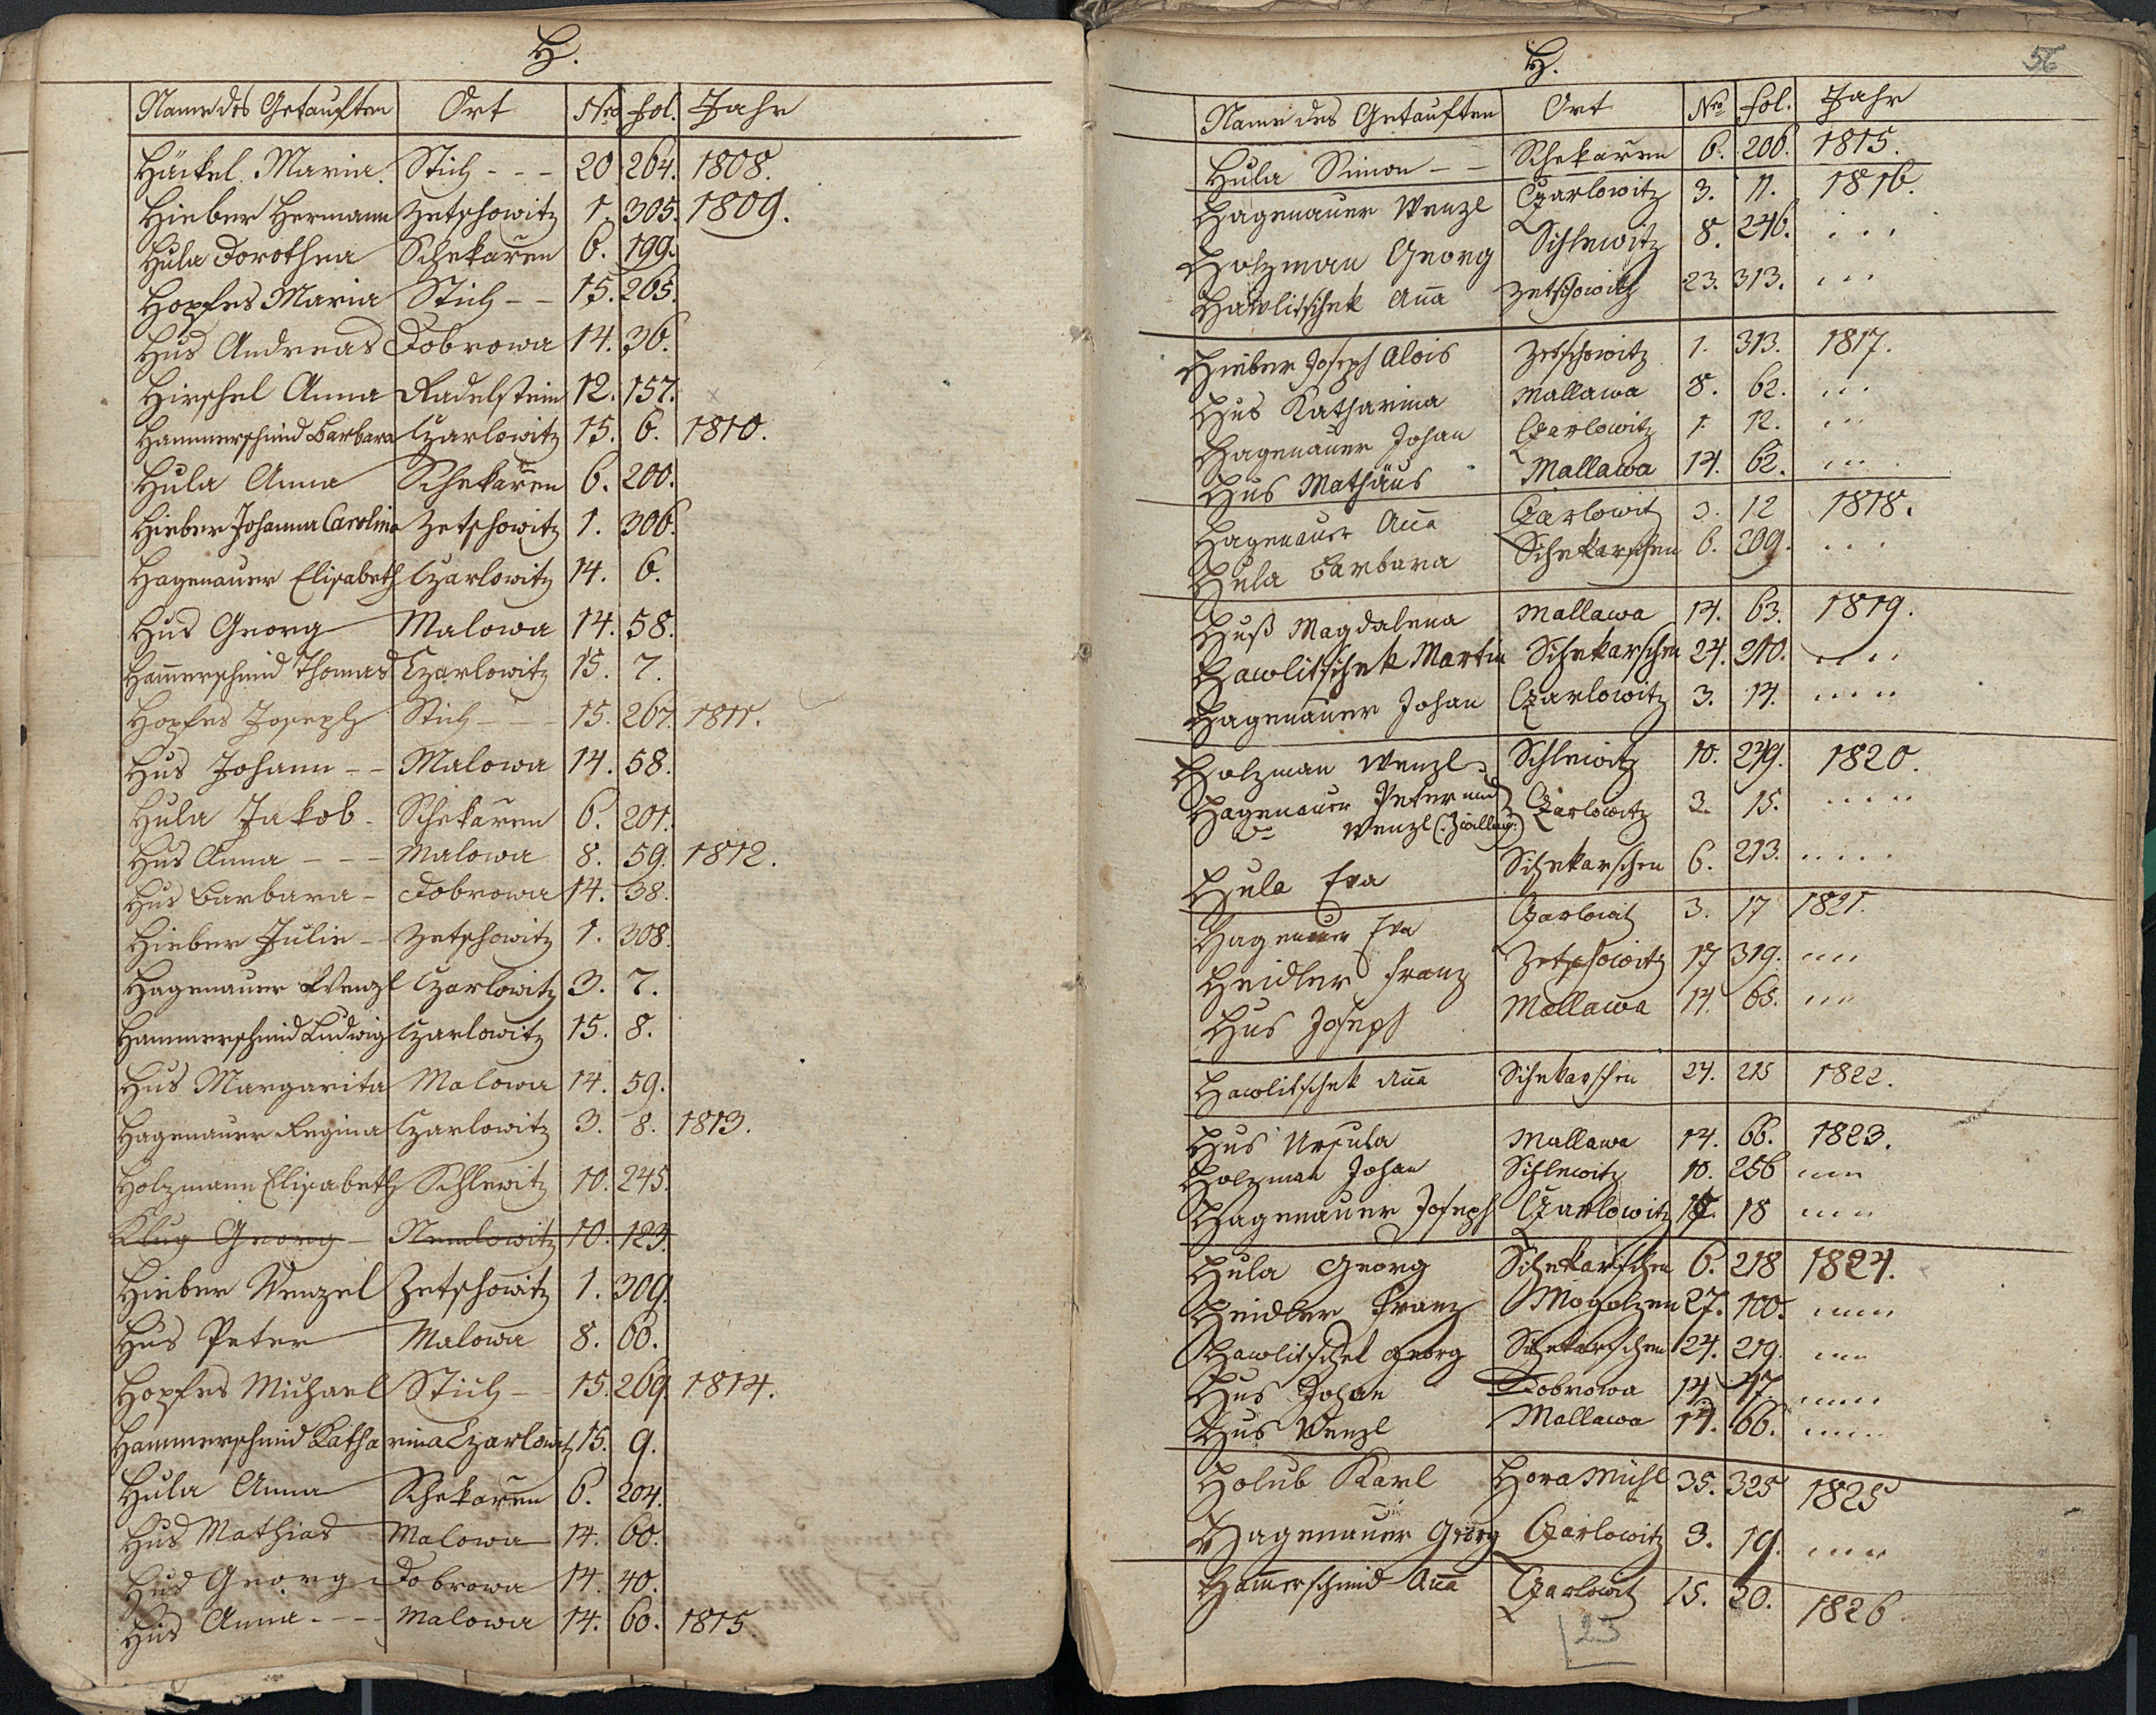 H.
Name des Getauften Ort Nro fol. Jahr
Häckel Maria Stich - - - 20 264. 1808.
Hieber Hermann Zetschowitz 1. 305. 1809.
Hula Dorothea Schekaren 6. 199.
Hopfes Maria Stich - - 15. 265.
Hus Andreas Dobrowa 14. 36.
Hirschel Anna Radelstein 12. 157.
Hammerschmid Barbara Czarlowitz 15. 6. 1810.
Hula Anna Schekaren 6. 200.
Hieber Johanna Carolina Zetschowitz 1. 306.
Hagenauer Elisabeth Czarlowitz 14. 6.
Hus Georg Malowa 14. 58.
Ham̄erschmid Thomas Czarlowitz 15. 7.
Hopfes Joseph Stich - - - 15. 267. 1811.
Hus Johann - - Malowa 14. 58.
Hula Jakob - Schekaren 6. 201.
Hus Anna - - - Malowa 8. 59. 1812.
Hus Barbara - Dobrowa 14. 38.
Hieber Julie - Zetschowitz 1. 308.
Hagenauer Wenzl Czarlowitz 3. 7.
Hammerschmid Ludwig Czarlowitz 15. 8.
Hus Margarita Malowa 14. 59.
Hagenauer Regina Czarlowitz 3. 8. 1813.
Holzmann Elisabeth Schlewitz 10. 245.
Klug Georg - Nemlowitz 10. 123.
Hieber Wenzel Zetschowitz 1. 309.
Hus Peter Malowa 8. 60.
Hopfes Michael Stich - - 15. 269. 1814.
Hammerschmid Katharina Czarlowitz 15. 9.
Hula Anna Schekaren 6. 204.
Hus Mathias Malowa 14. 60.
Hus Georg Dobrowa 14. 40.
Hus Anna - - - Malowa 14. 60. 1815.
H. 56
Name des Getauften Ort Nro fol. Jahr
Hula Simon - - Schekaren 6. 206. 1815.
Hagenauer Wenzl Czarlowitz 3. 11. 1816.
Holzman Georg Schlewitz 8. 246. . . .
Hawlitschek An̄a Zetschowitz 23. 313. . . .
Hieber Joseph Alois Zetschowitz 1. 313. 1817.
Hus Katharina Mallawa 8. 62. . .
Hagenauer Johan Czarlowitz 1. 12. . . .
Hus Mathäus Mallawa 14. 62. . . .
Hagenauer An̄a Czarlowit 3. 12 1818.
Hula Barbara Schekarschen 6. 209. . . .
Huß Magdalena Mallawa 14. 63. 1819.
Hawlitschek Martin Schekarschen 24. 210. . . . .
Hagenauer Johan Czarlowitz 3. 14. . . . .
Holzman Wenzl Schlewitz 10. 249. 1820.
Hagenauer Peter und Czarlowitz 3. 15. . . . . .
do Wenzl (:Zwilling:)
Hula Eva Schekarschen 6. 213. . . . . .
Hagenauer Eva Czarlowit 3. 17 1821.
Heidler Franz Zetschowitz 17 319. . . . .
Hus Joseph Mallawa 14. 65. . . . .
Hawlitschek An̄a Schekarschen 24. 215 1822.
Hus Ursula Mallawa 14. 66. 1823.
Holzman Johan Schlewitz 10. 256 . . . .
Hagenauer Joseph Czarlowitz 18 . . . .
Hula Georg Schekarschen 6. 218 1824.
Heidler Franz Mogolzen 27. 100. . . . . .
Hawlitschek Georg Schekarschen 24. 219. . . . .
Hus Johan Dobrowa 14. 47. . . . . .
Hus Wenzl Mallawa 14. 66. . . . . .
Holub Karl Hora Mühl 35. 325 1825
Hagenauer Georg Czarlowitz 3. 19. . . . .
Ham̄erschmid An̄a Czarlowit 15. 20. 1826.
23